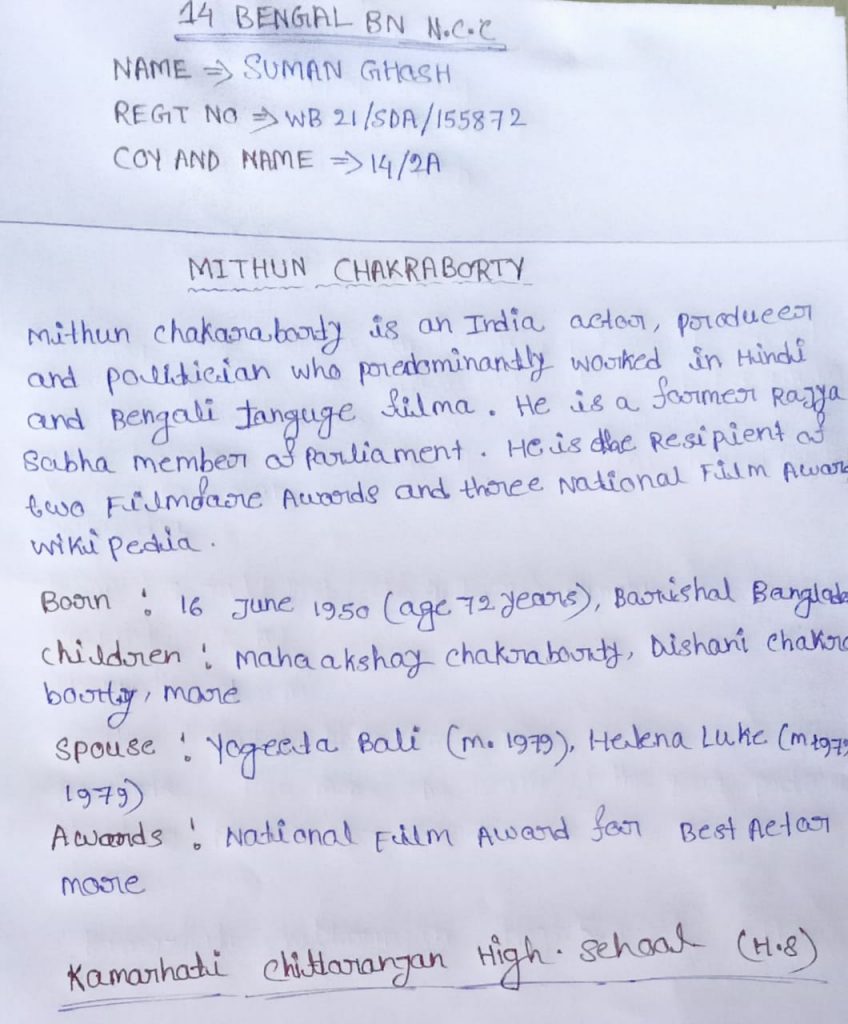 14 BENGAL BN N.C.C
NAME ⇒ SUMAN GHOSH
REGT NO ⇒ WB 21/SDA/155872
COY AND NAME ⇒ 14/2A
MITHUN CHAKRABORTY
Mithun chakaraborty is an India actor, producer
and politician who predominantly worked in Hindi
and Bengali Janguge films. He is a former Rajya
Sabha member of Parliament. He is the Resipient of
two Filmfare Awards and three National Film Award
wikipedia.
Born : 16 June 1950 (age 72 years), Barishal Banglade
children : Mahaakshay chakraborty, Dishani chakra
borty, more
Spouse : Yogeeta Bali (m. 1979), Helena Luke (m 1979
1979)
Awards : National Film Award for Best Actor
more
Kamarhati chittaranjan High. School (H.S)